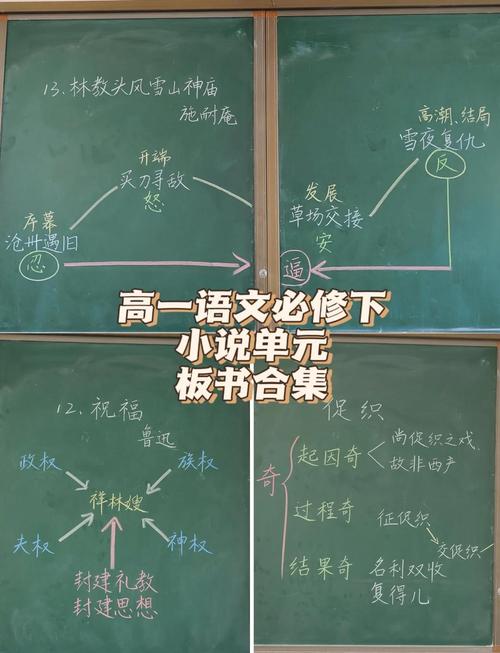 13、林教头风雪山神庙
施耐庵
开端
买刀寻敌
怒
序幕
沧州遇旧
忍
高潮、结局
雪夜复仇
反
发展
草场交接
安
逼
高一语文必修下
小说单元
板书合集
12、祝福
鲁迅
政权
族权
祥林嫂
夫权
神权
封建礼教
封建思想
促织
奇
起因奇
尚促织之戏
故非西产
过程奇
征促织
交促织
结果奇
名利双收
复得儿